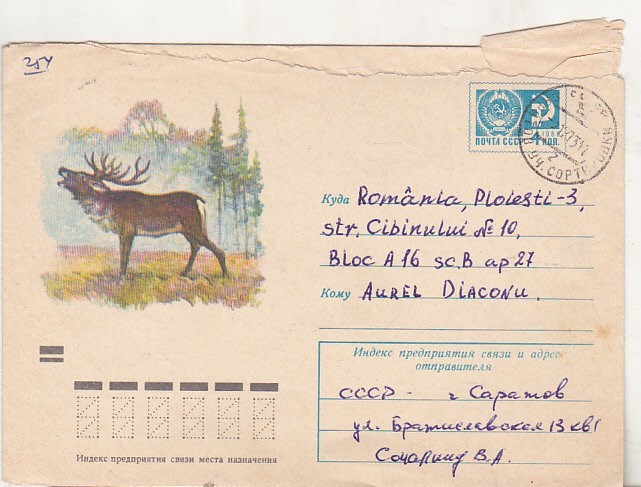 254
ПОЧТА СССР 4 КОП.
Куда România, Ploiesti-3,
str. Cibinului № 10,
Bloc A 16 sc. B ap 27
Кому AUREL DIACONU.
Индекс предприятия связи и адрес
отправителя
СССР - г Саратов
ул. Братиславская 13 кв 1
В.А.
Индекс предприятия связи места назначения